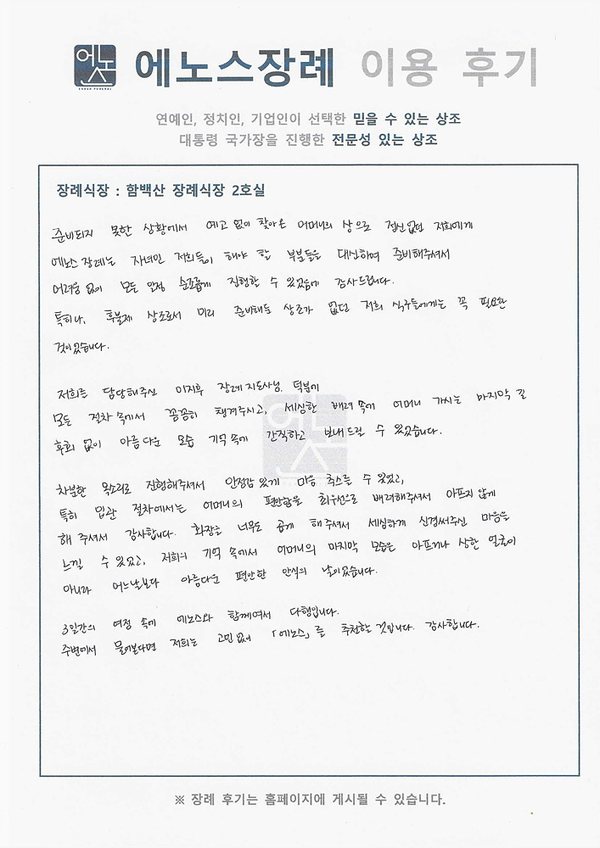 에노스
ENOUS FUNERAL
에노스장례 이용 후기
연예인, 정치인, 기업인이 선택한 믿을 수 있는 상조
대통령 국가장을 진행한 전문성 있는 상조
장례식장 : 함백산 장례식장 2호실
준비되지 못한 상황에서 예고 없이 찾아온 어머니의 상으로 정신없던 저희에게
에노스 장례는 자녀인 저희들이 해야 할 부분들을 대신하여 준비해주셔서
어려움 없이 모든 일정 순조롭게 진행할 수 있었음에 감사드립니다.
특히나, 후불제 상조로서 미리 준비해둔 상조가 없던 저희 식구들에게는 꼭 필요한
것이었습니다.
저희를 담당해주신 이지후 장례지도사님 덕분에
모든 절차 속에서 꼼꼼히 챙겨주시고, 세심한 배려 속에 어머니 가시는 마지막 길
후회 없이 아름다운 모습 기억 속에 간직하고 보내드릴 수 있었습니다.
차분한 목소리로 진행해주셔서 안정감 있게 마음 추스를 수 있었고,
특히 입관 절차에서는 어머니의 편안함을 최우선으로 배려해주셔서 아프지 않게
해 주셔서 감사합니다. 화장을 너무도 곱게 해 주셔서 세심하게 신경써주신 마음을
느낄 수 있었고, 저희의 기억 속에서 어머니의 마지막 모습은 아프거나 상한 얼굴이
아니라 어느날보다 아름다운 편안한 안식의 날이었습니다.
3일간의 여정 속에 에노스와 함께여서 다행입니다.
주변에서 물어본다면 저희는 고민없이 「에노스」를 추천할 것입니다. 감사합니다.
※ 장례 후기는 홈페이지에 게시될 수 있습니다.